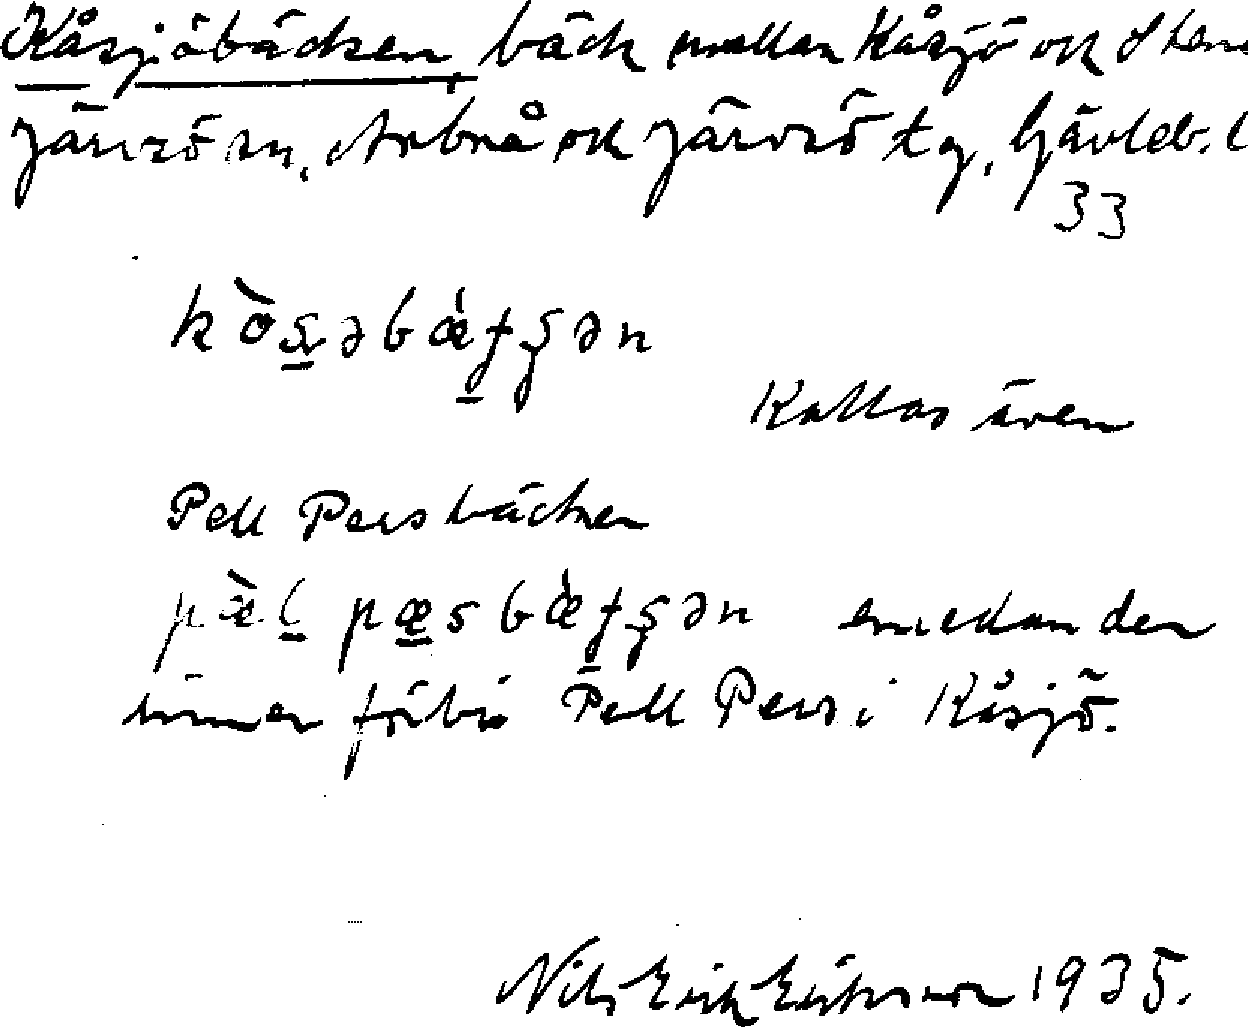 Kåsjöbäcken, bäck mellan Kåsjö ock Stene
Järvsö sn, Arbrå ock Järvsö tg, Gävleb. l
33
kò̀s̠əbæ̀ʈʂən
Kallas även
Pell Persbäcken
pæ̀l̠ pæ̠sbæ̀ʈʂən emedan den
rinner förbi Pell Pers i Kåsjö.
Nils Erik Eriksson 1935.